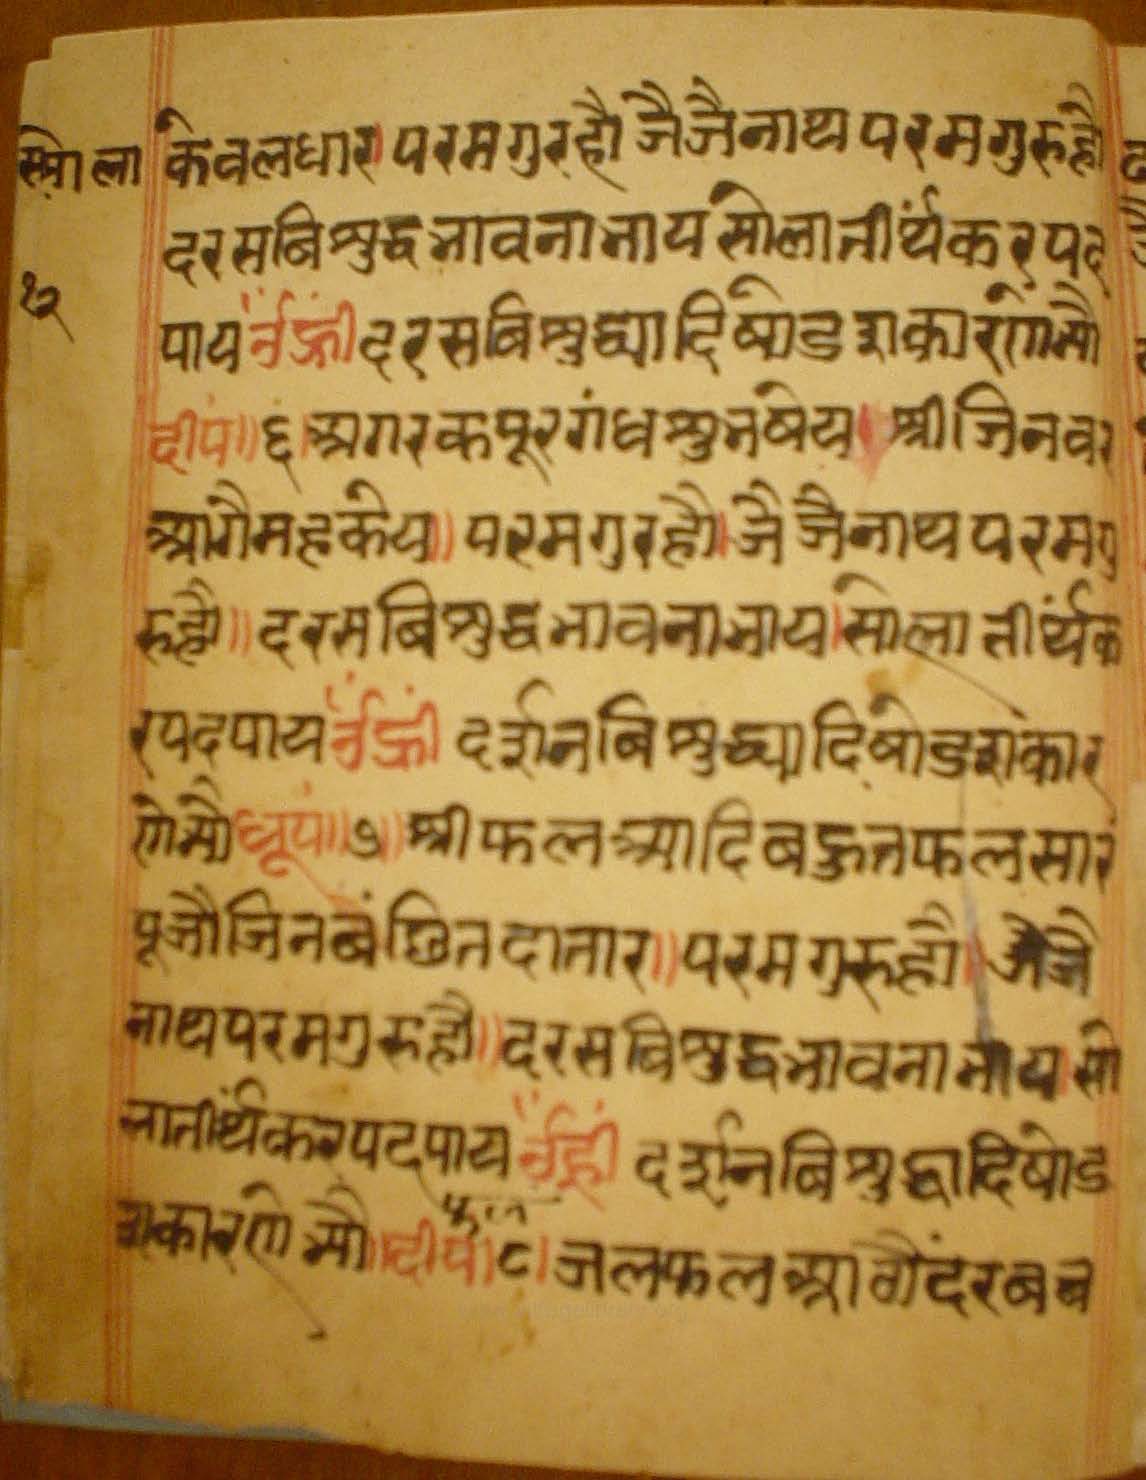 सोला
१२
केवलधार। परमगुरहौ जैजैनाथ परमगुरुहौ
दरसबिशुद्ध भावना भाय सोला तीर्थंकर पद
पाय ॐ ह्रीं दरसबिशुद्ध्यादि षोडशकारणेभ्यो
दीपं॥ ६। अगर कपूर गंध शुभ षेय। श्री जिनवर
आगै महकेय॥ परमगुरहौ। जै जैनाथ परमगु
रुहौ॥ दरसबिशुद्ध भावना भाय। सोला तीर्थंक
र पद पाय ॐ ह्रीं दर्शनबिशुद्ध्यादि षोडशकार
णेभ्यो धूपं॥ ७॥ श्रीफल आदि बहुत फल सार
पूजौ जिन बंछित दातार॥ परमगुरुहौ। जैजै
नाथ परमगुरुहौ॥ दरसबिशुद्ध भावना भाय। सो
ला तीर्थंकर पद पाय ॐ ह्रीं दर्शनबिशुद्धादि षोड
शकारणेभ्यो। दीपं। ८। जल फल
फल